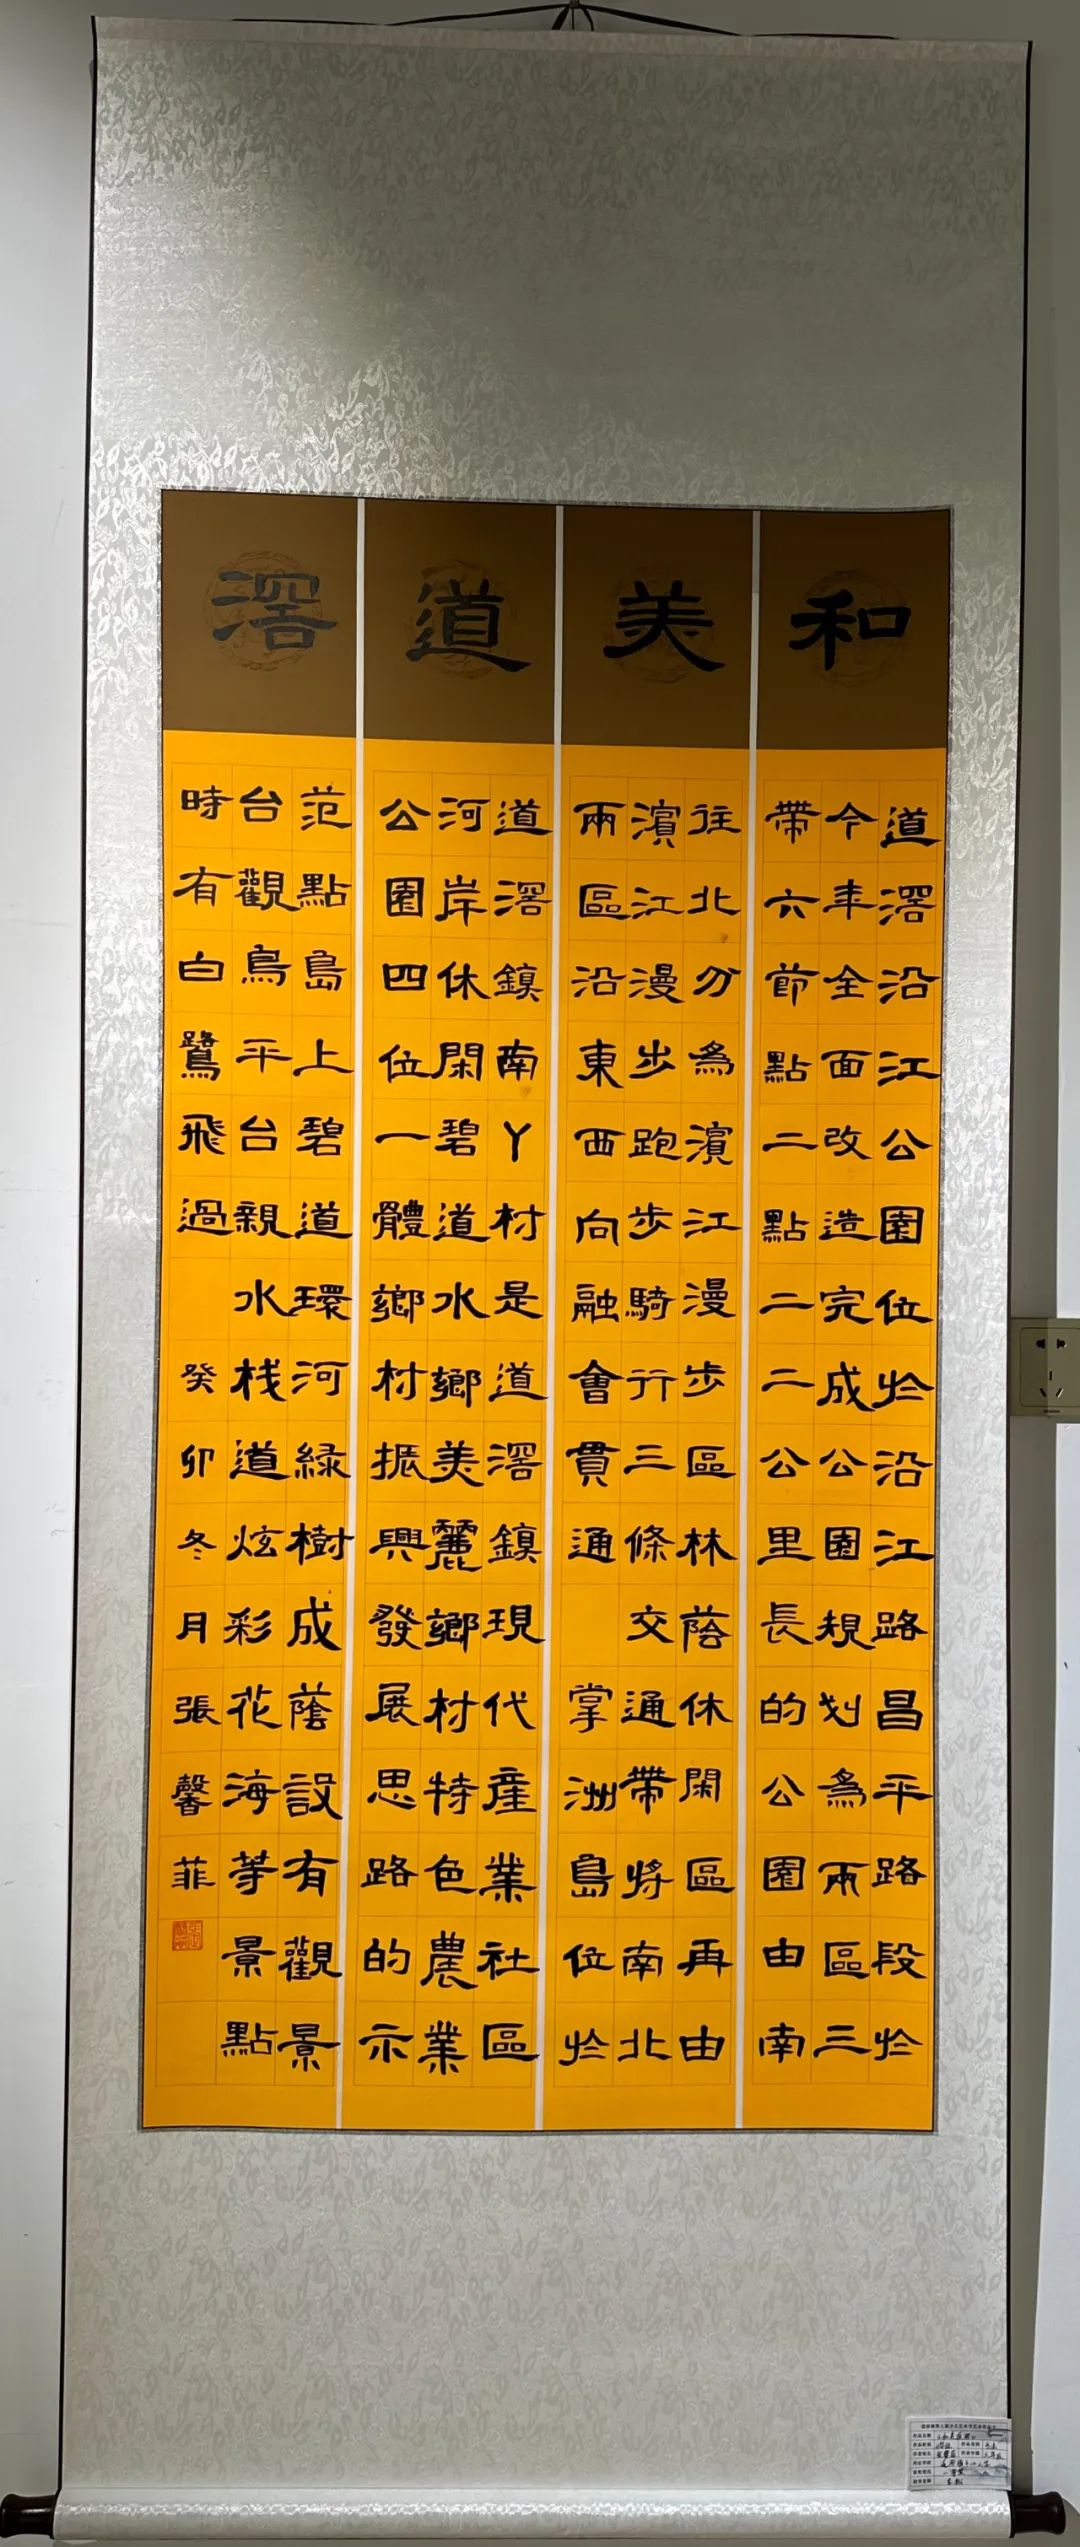 和美道滘
道滘沿江公園位於沿江路昌平路段於
今年全面改造完成公園規划爲兩區三
帶六節點二點二二公里長的公園由南
往北分爲濱江漫步區林蔭休閑區再由
濱江漫步跑步騎行三條交通帶將南北
兩區沿東西向融會貫通 掌洲島位於
道滘鎮南丫村是道滘鎮現代產業社區
河岸休閑碧道水鄉美麗鄉村特色農業
公園四位一體鄉村振興發展思路的示
范點島上碧道環河緑樹成蔭設有觀景
台觀鳥平台親水栈道炫彩花海等景點
時有白鷺飛過 癸卯冬月張馨菲